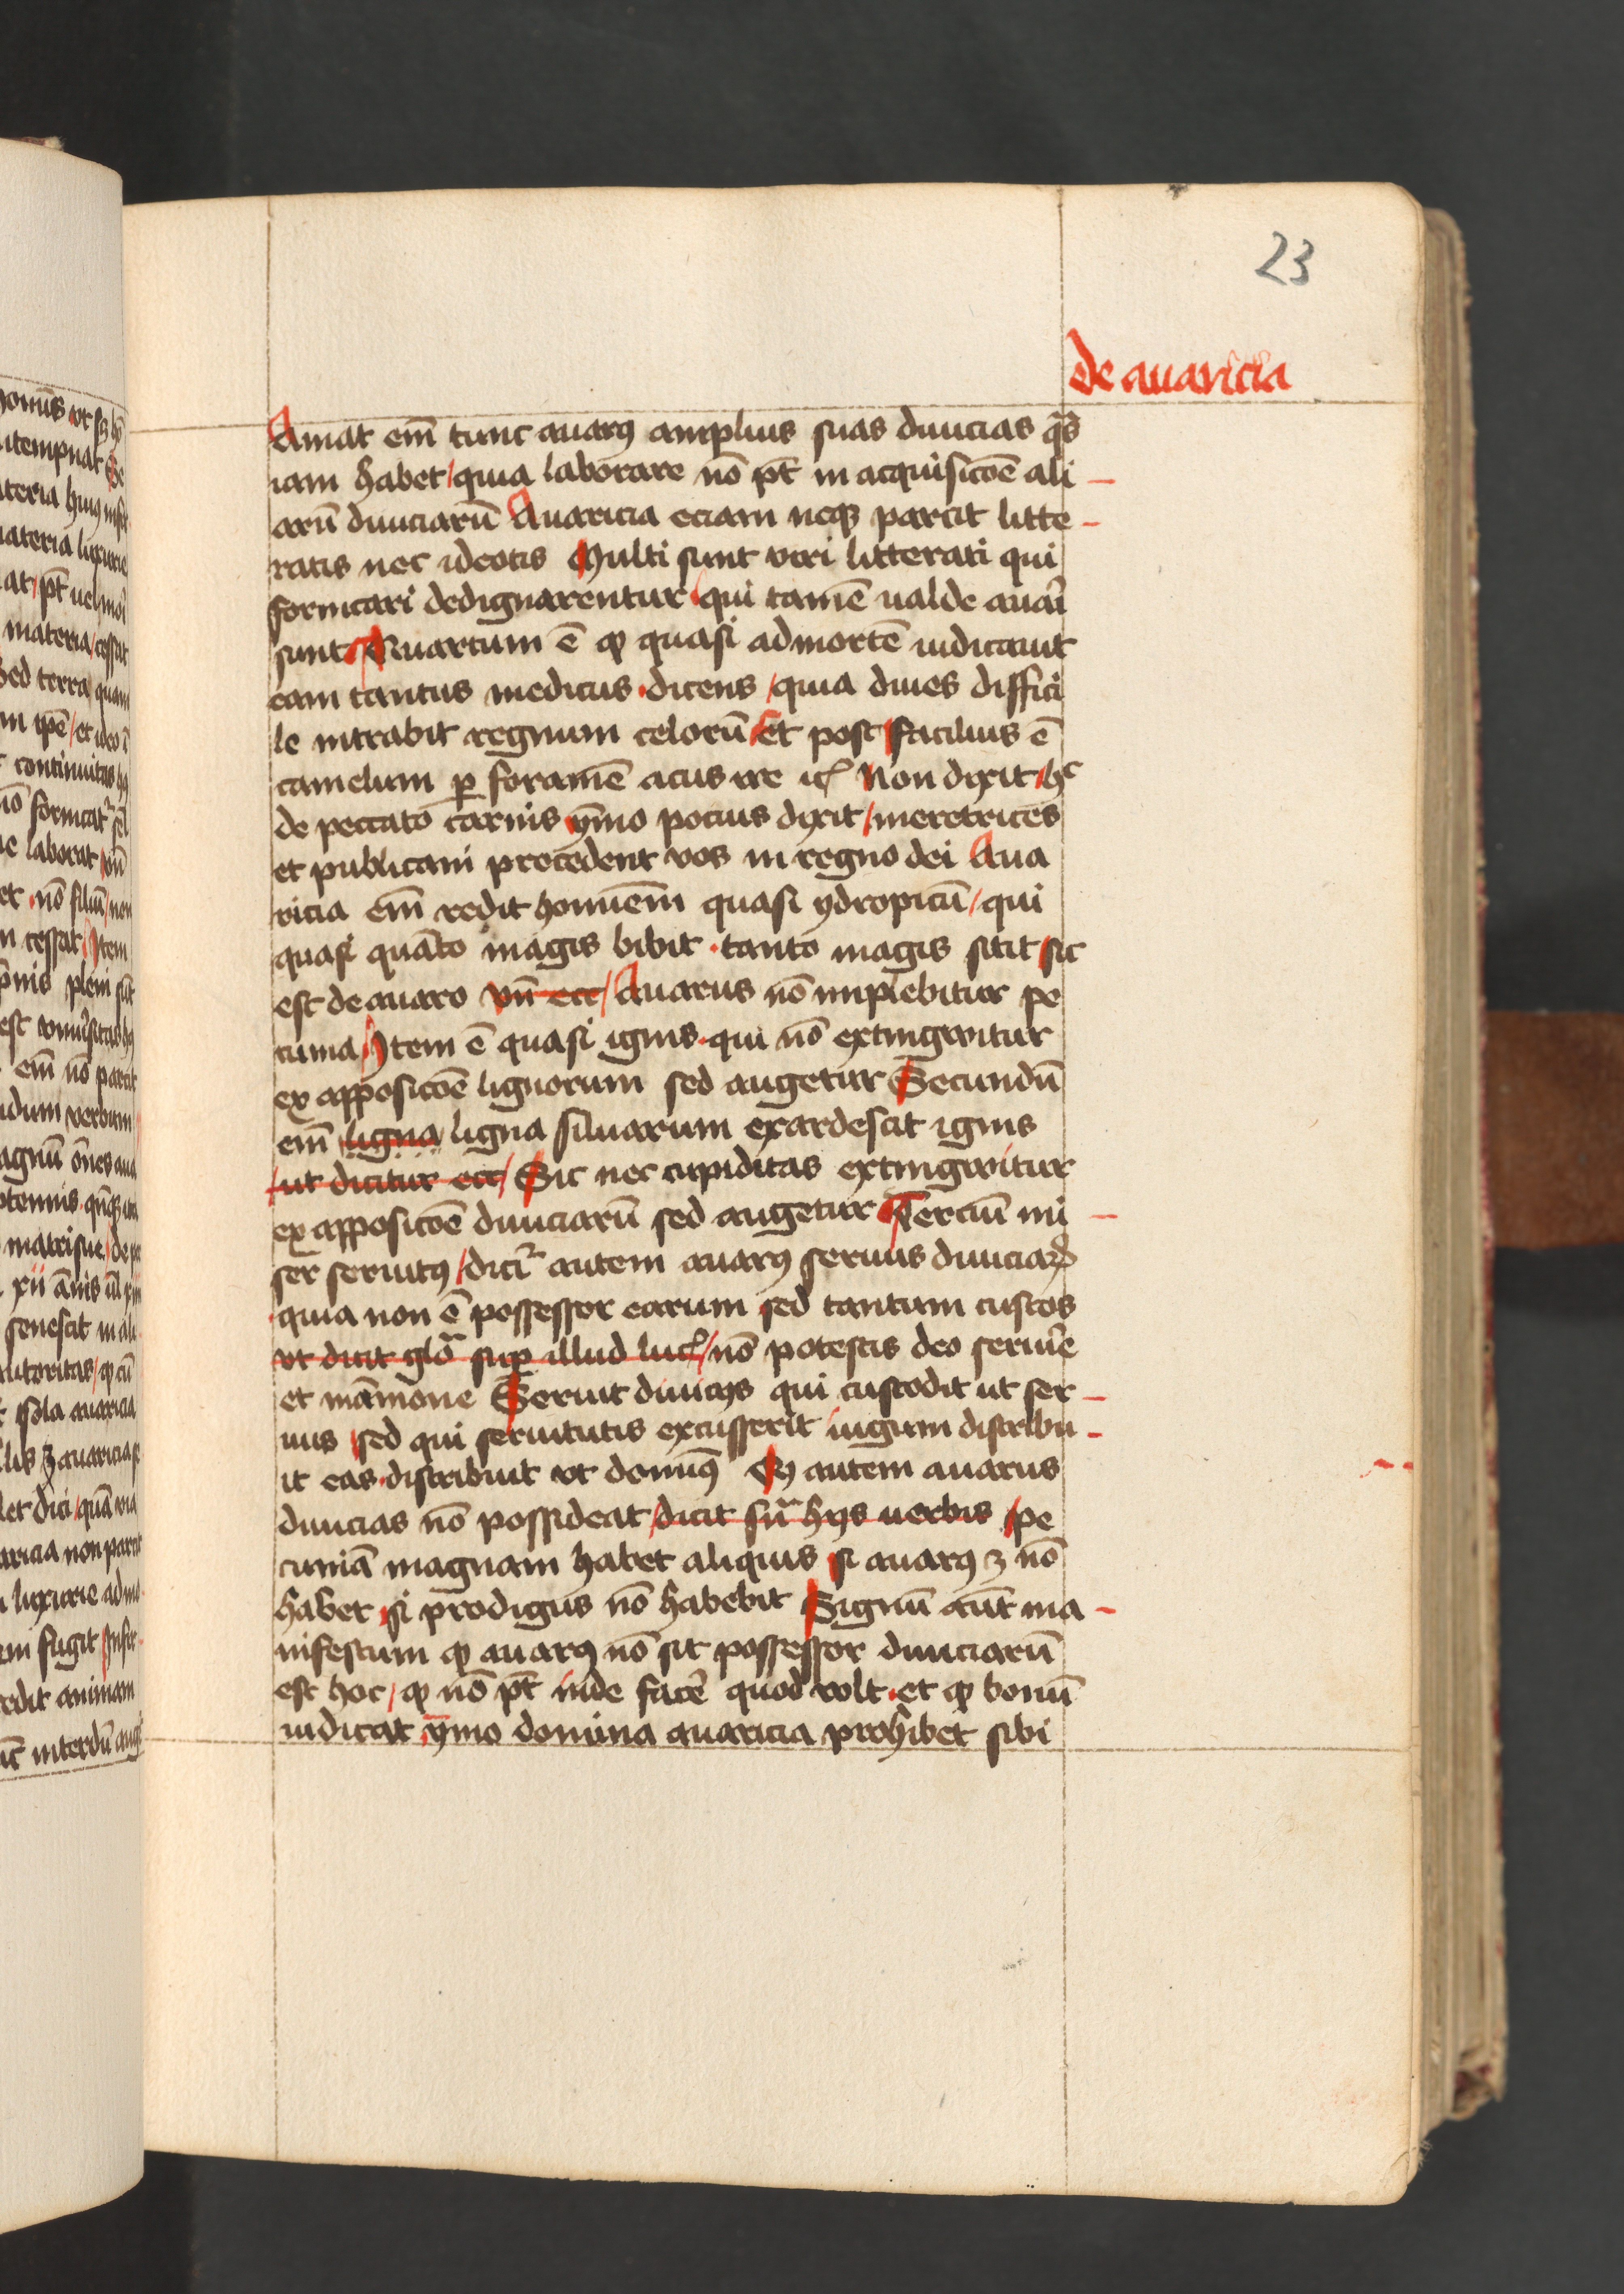 23
de auaricia
Amat em̄ tunc auarꝰ amplius suas diuicias qͣs
iam habet / quia laborare nō pt̄ in acquisicōe ali
arū diuiciarū Auaricia eciam neqꝫ parcit litte
ratis nec ideotis Multi sunt viri litterati qui
fornicari dedignarentur qui tamē ualde auari
sunt Quartum ē ꝙ quasi ad mortē iudicauit
eam tantus medicus · dicens / quia diues diffici
le intrabit regnum celorū Et post facilius ē
camelum ꝑ foramē acus ire ⁊cͣ Non dixit / hͨ
de peccato carnis ymmo pocius dixit / meretrices
et publicani precedent vos in regno dei Aua
ricia em̄ redit hominem quasi ydropicū / qui
quasi quāto magis bibit · tanto magis sitit sic
est de auaro vn̄ ecc / Auarus nō implebitur pe
cunia / Item ē quasi ignis · qui nō extingwitur
ex apposicōe lignorum sed augetur Secundū
em̄ ligna ligna siluarum exardescit ignis
ut dicitur ecc / Sic nec cupiditas extingwitur
ex apposicōe diuiciarū sed augetur Terciū mi
ser seruitꝰ / dicit᷑ autem auarꝰ seruus diuiciaꝝ
quia non ē possessor earum sed tantum custos
vt dicit gloͣ suꝑ illud luc̄ / nō potestis deo seruire
et māmone Seruit diuicijs qui custodit ut ser
uus sed qui seruitutis excusserit iugum distribu
it eas · distribuit vt dominꝰ Qꝫ autem auarus
diuicias nō possideat / dicit suͣ hijs uerbis / pe
cuniā magnam habet aliquis si auarꝰ ꝫ nō
habet si prodigus nō habebit Signū aūt ma
nifestum ꝙ auarꝰ nō sit possessor diuiciarū
est hoc / ꝙ nō pt̄ inde facē quod volt · et ꝙ bonū
iudicat ymo domina auaricia prohibet sibi